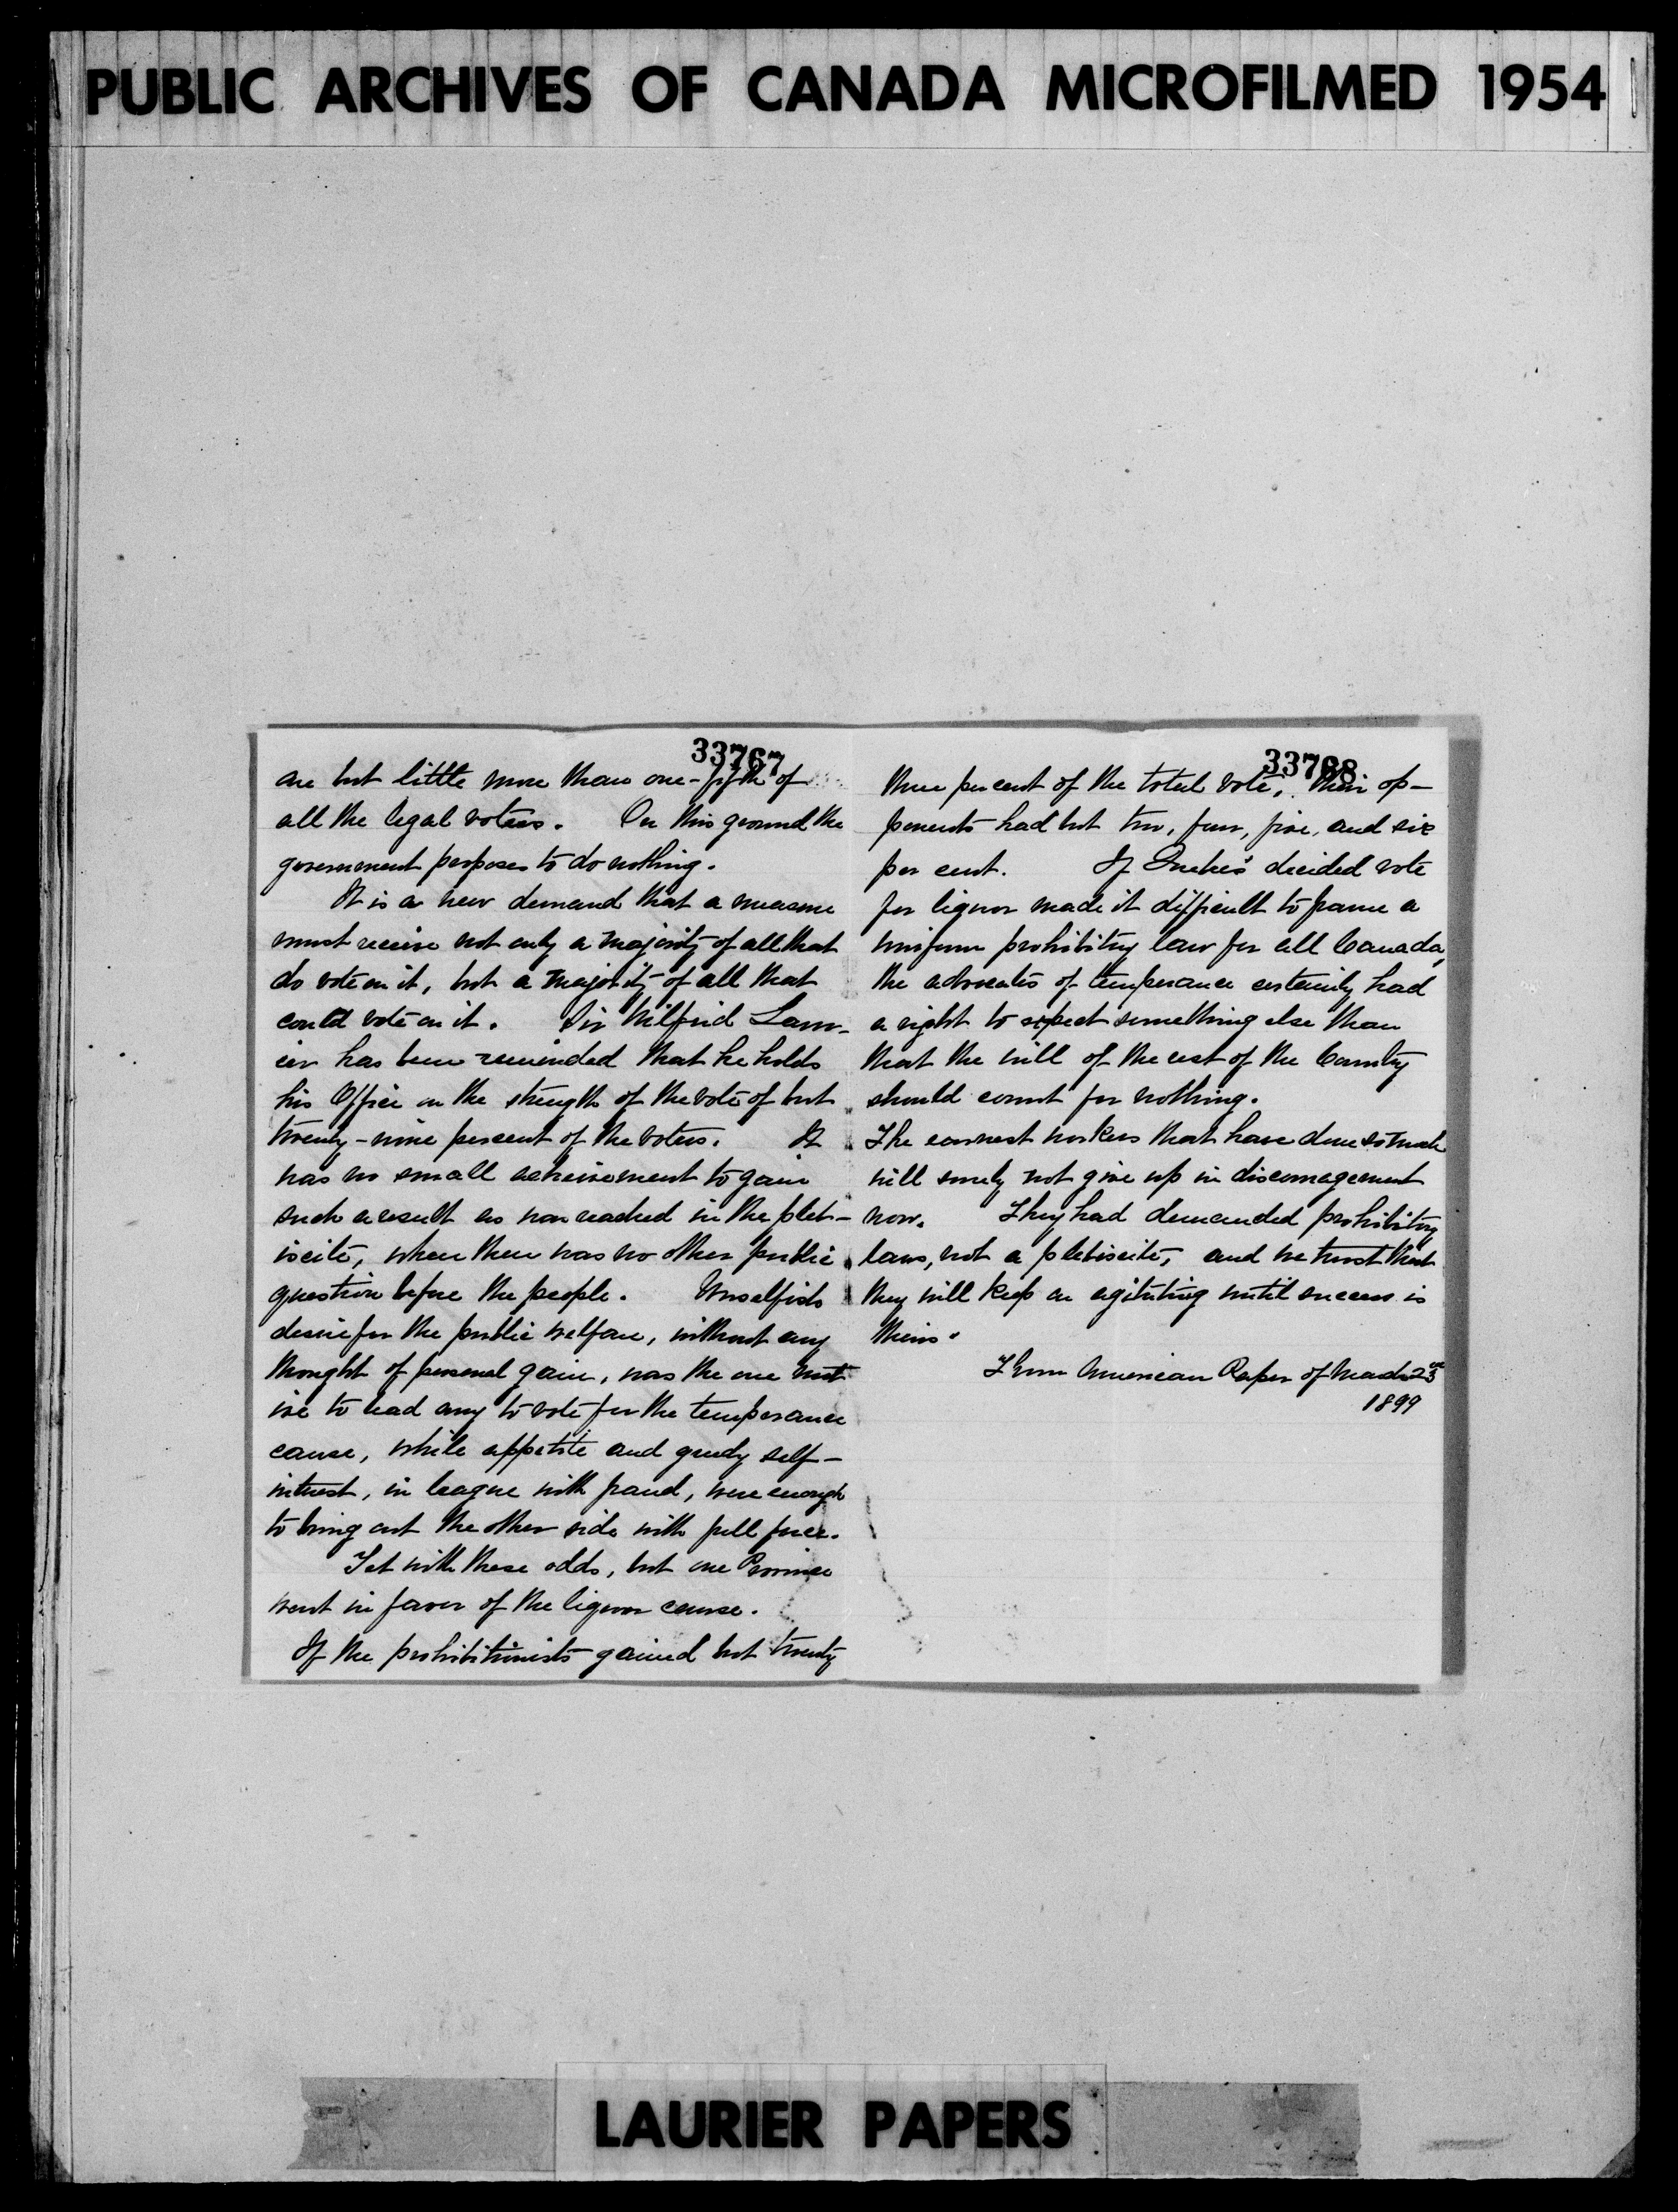 PUBLIC ARCHIVES OF CANADA MICROFILMED 1954
33767
are but little more than one-fifth of
all the legal voters. On this ground the
government proposes to do nothing.
It is a new demand that a measure
must receive not only a majority of all that
do vote on it, but a majority of all that
could vote on it. Sir Wilfrid Laur-
ier has been reminded that he holds
his Office on the strength of the vote of but
twenty-nine percent of the voters. It
was no small acheivement to gain
such a result as was reached in the pleb-
iscite, when there was no other public
question before the people. Unselfish
desire for the public welfare, without any
thought of personal gain, was the one mot
ive to lead any to vote for the temperance
cause, while appetite and greedy self-
interest, in league with fraud, were enough
to bring out the other side with full force.
Yet with these odds, but one Province
went in favor of the liquor cause.
If the prohibitionists gained but twenty
33768
three per cent of the total vote, their op-
ponents had but two, four, five, and six
per cent. If Quebec's decided vote
for liquor made it difficult to frame a
uniform prohibitory law for all Canada,
the advocates of temperance certainly had
a right to expect something else than
that the will of the rest of the Country
should count for nothing.
The earnest workers that have done so much
will surely not give up in discouragement
now. They had demanded prohibitory
laws, not a plebiscite, and we trust that
they will keep on agitating until success is
theirs.
From American Paper of March 23
1899
LAURIER PAPERS